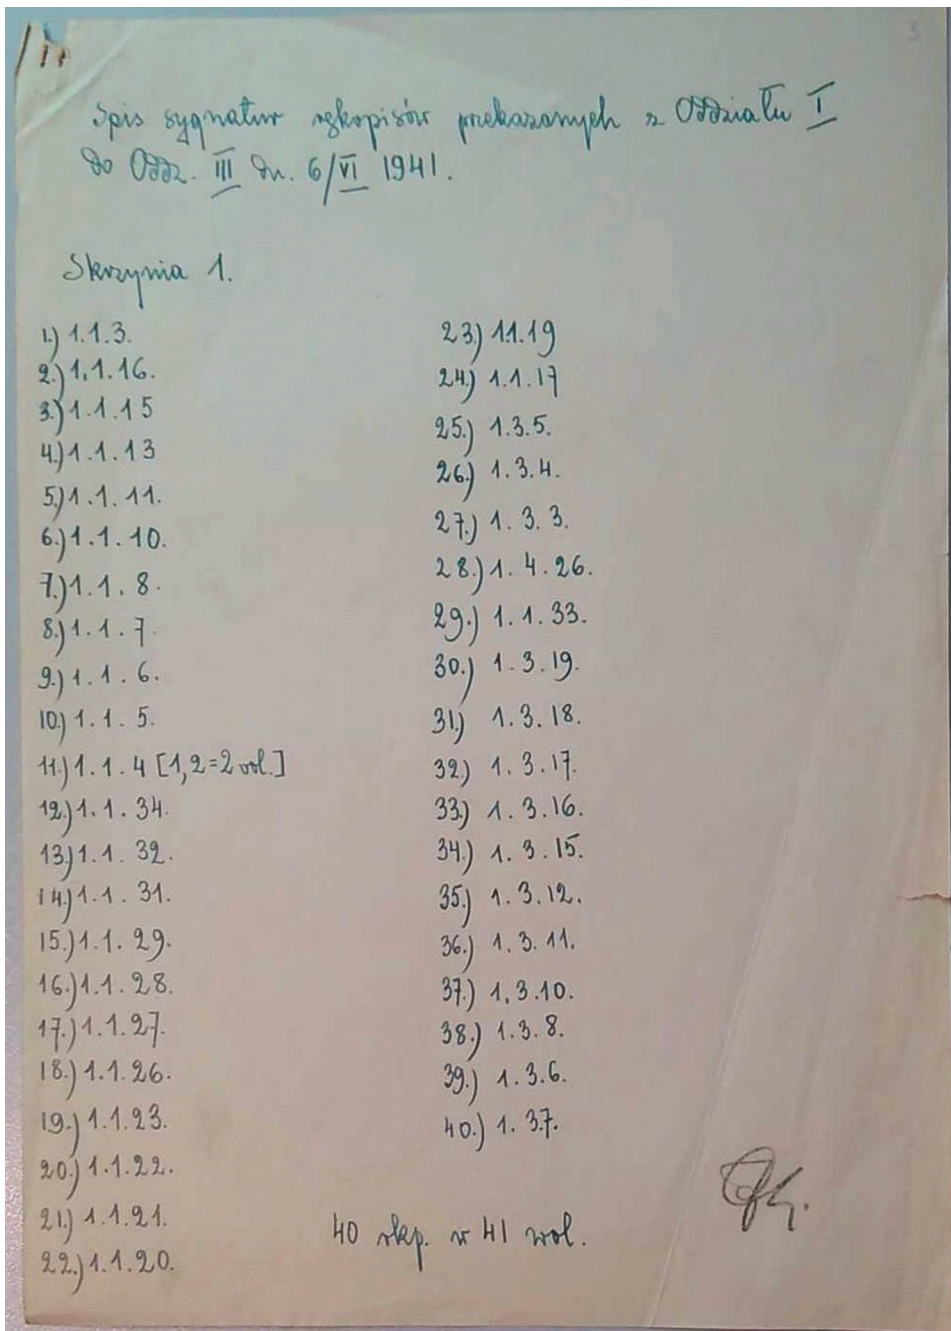 3
Spis sygnatur rękopisów przekazanych z Oddziału I
do Oddz. III dn. 6/VI 1941.
Skrzynia 1.
1.) 1.1.3.
2.) 1.1.16.
3.) 1.1.15
4.) 1.1.13
5.) 1.1.11.
6.) 1.1.10.
7.) 1.1.8.
8.) 1.1.7.
9.) 1.1.6.
10.) 1.1.5.
11.) 1.1.4 [1,2=2 vol.]
12.) 1.1.34.
13.) 1.1.32.
14.) 1.1.31.
15.) 1.1.29.
16.) 1.1.28.
17.) 1.1.27.
18.) 1.1.26.
19.) 1.1.23.
20.) 1.1.22.
21.) 1.1.21.
22.) 1.1.20.
23.) 1.1.19
24.) 1.1.17
25.) 1.3.5.
26.) 1.3.4.
27.) 1.3.3.
28.) 1.4.26.
29.) 1.1.33.
30.) 1.3.19.
31.) 1.3.18.
32.) 1.3.17.
33.) 1.3.16.
34.) 1.3.15.
35.) 1.3.12.
36.) 1.3.11.
37.) 1.3.10.
38.) 1.3.8.
39.) 1.3.6.
40.) 1.3.7.
40 rkp. w 41 wol.